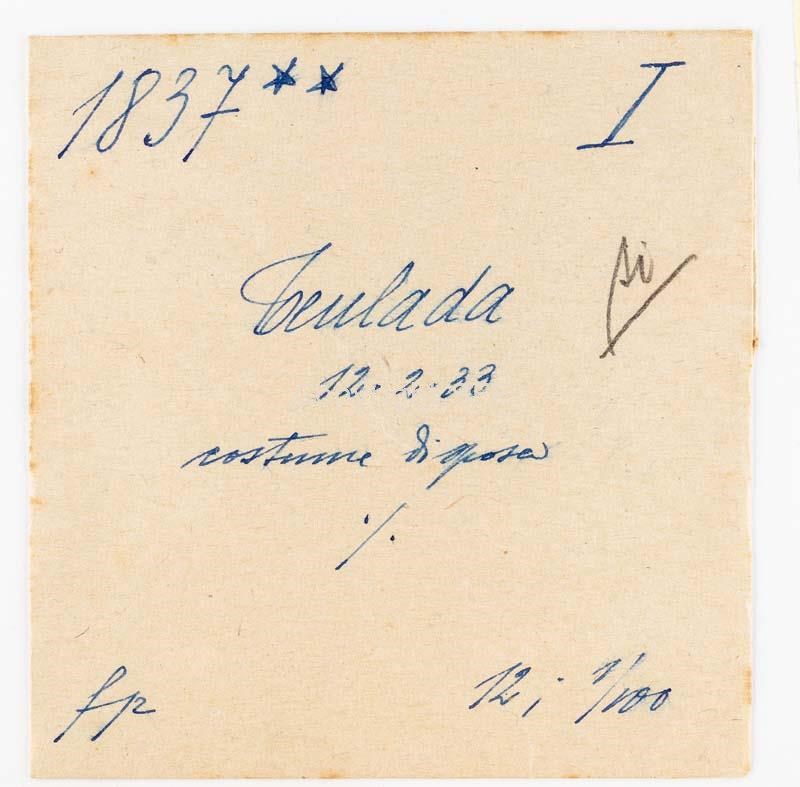 1837** I
Teulada
si
12.2.33
costume di sposa
./.
fp 12; 1/100